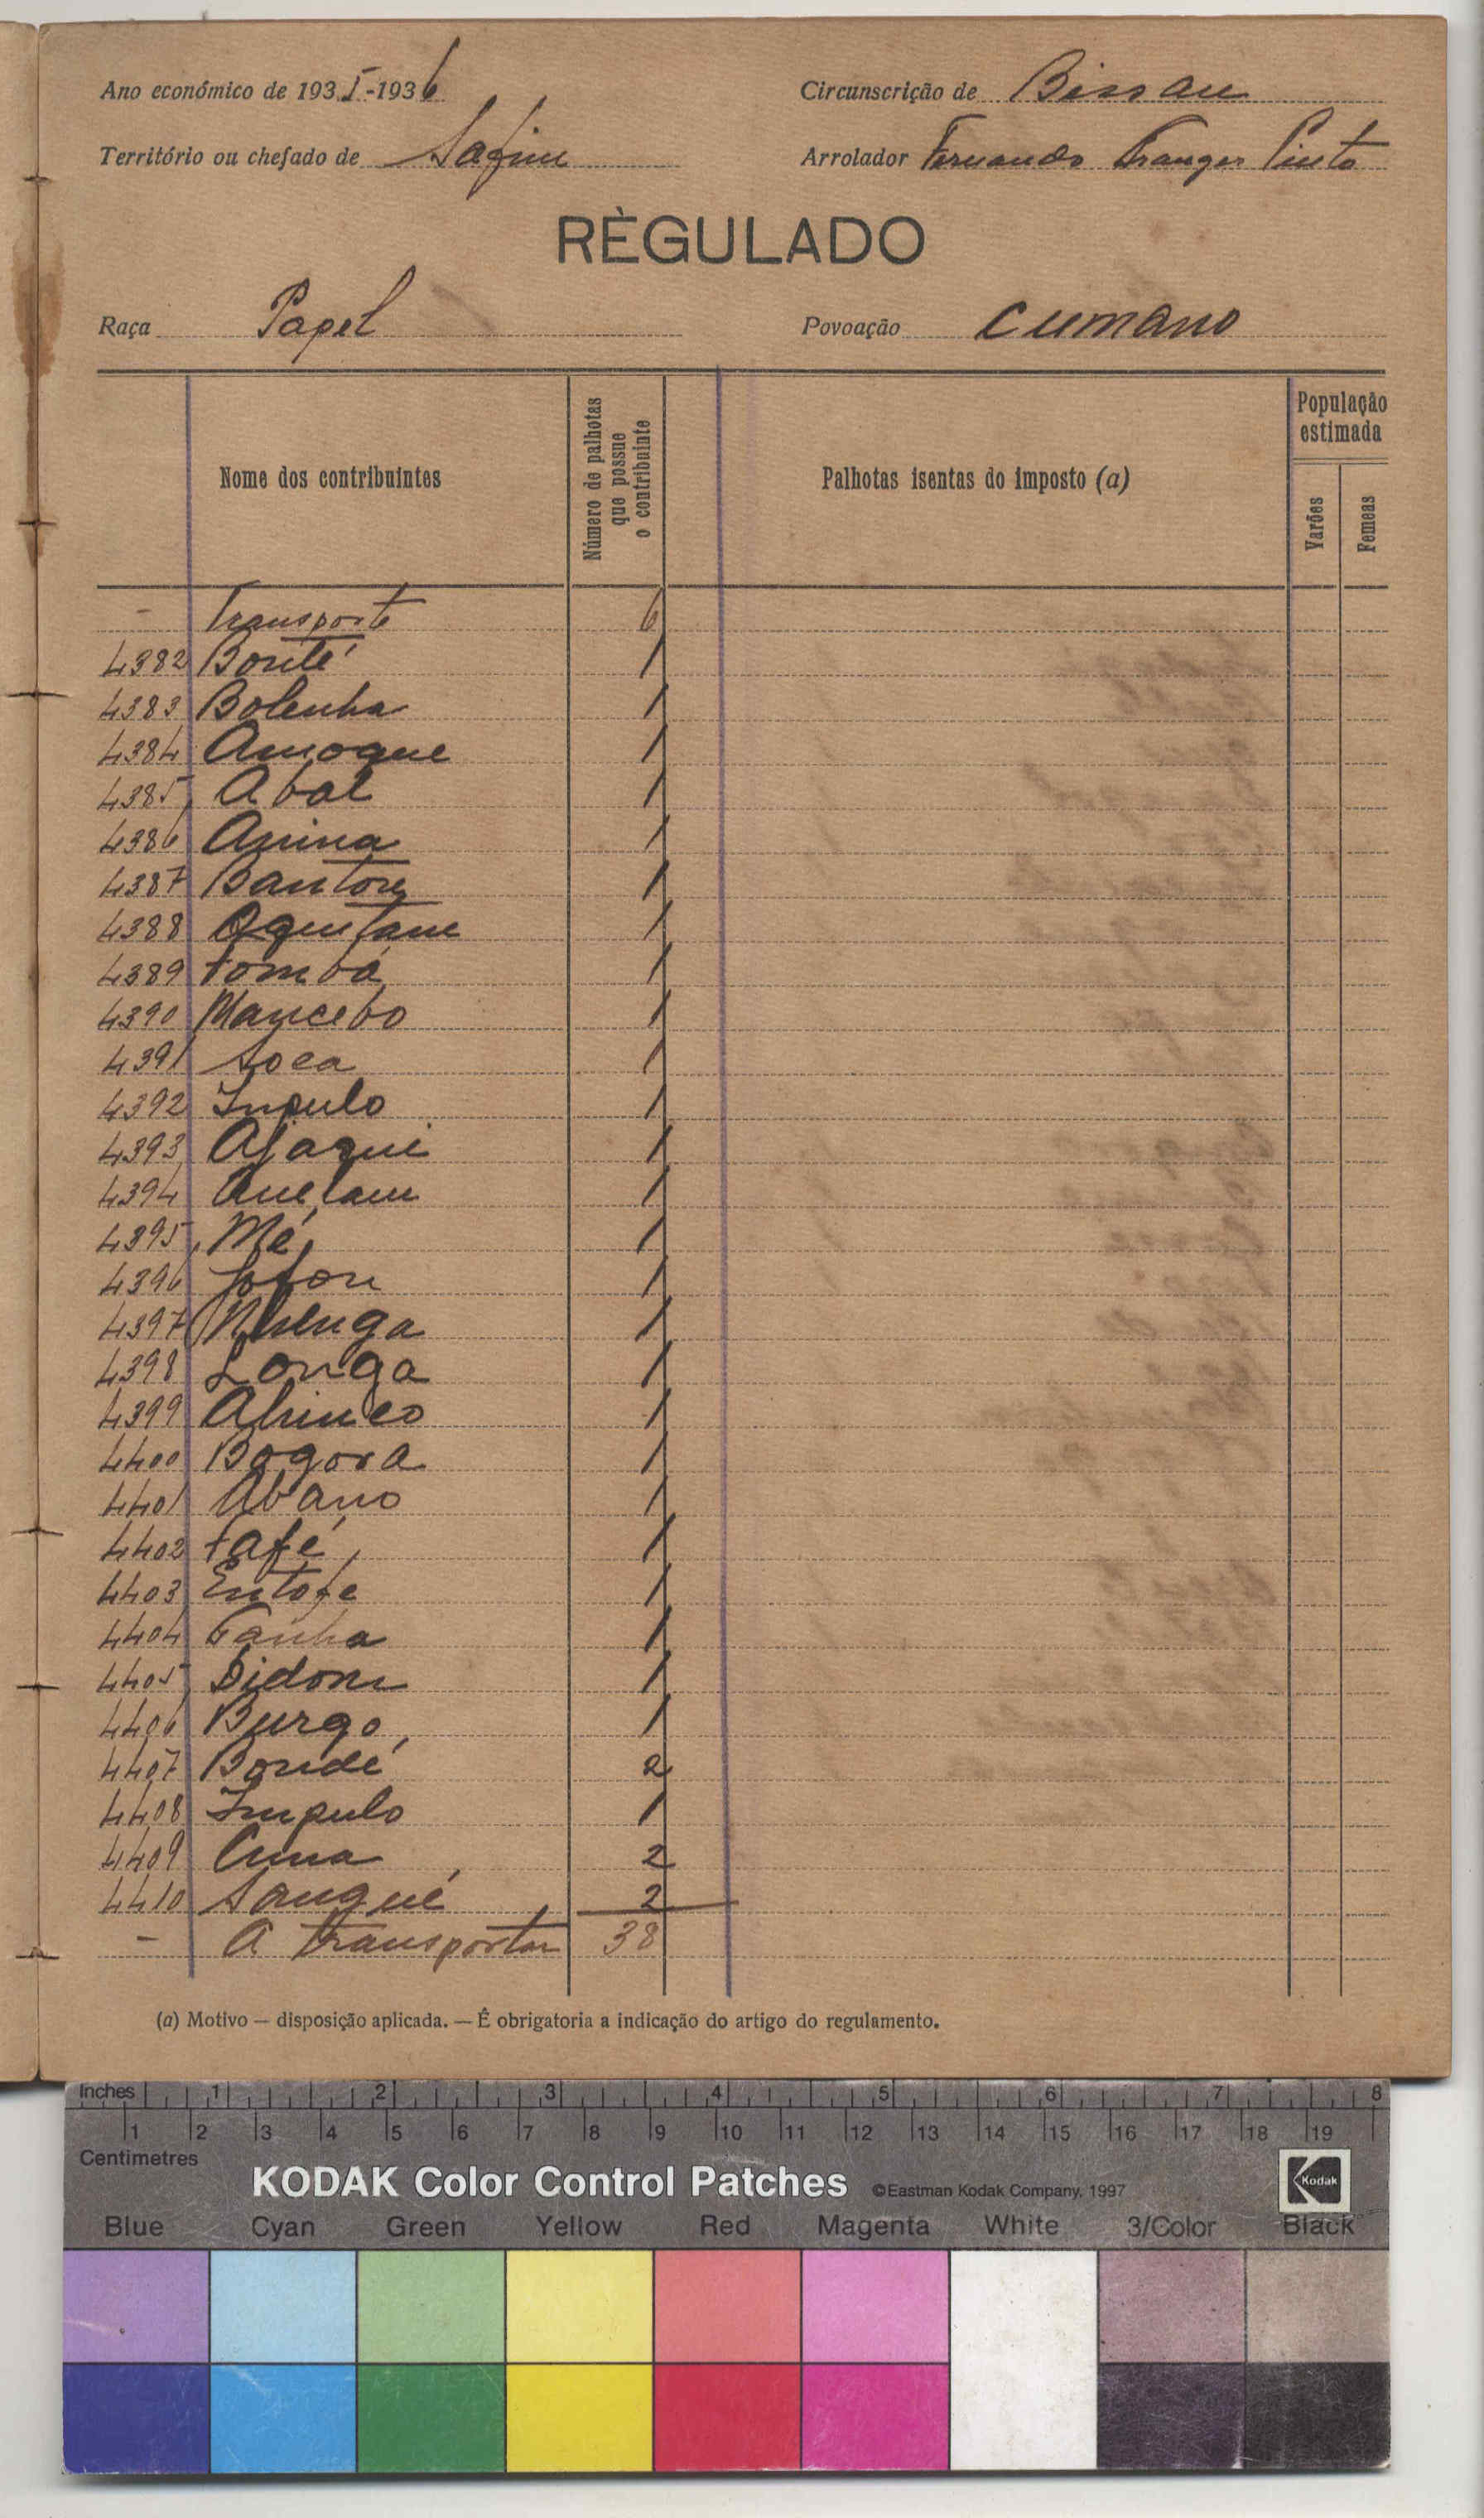 Ano económico de 1935-1936 Circunscrição de Bissau
Território ou chefado de Safim Arrolador Fernando Pinto
RÈGULADO
Raça Papel Povoação Cumano
Nome dos contribuintes Número de palhotas que possue o contribuinte Palhotas isentas do imposto (a) População estimada Varões Femeas
- Transporte 6
4382 Bonté 1
4383 Bolenha 1
4384 Amoque 1
4385 Abal 1
4386 Anina 1
4387 1
4388 1
4389 Tombá 1
4390 Mancebo 1
4391 Soca 1
4392 Inpulo 1
4393 1
4394 1
4395 Mé 1
4396 1
4397 Nhenga 1
4398 Longa 1
4399 1
4400 Bogora 1
4401 Abano 1
4402 Fafé 1
4403 1
4404 1
4405 Didom 1
4406 Burgo 1
4407 Bondé 2
4408 Impulo 1
4409 2
4410 Sangué 2
- A transportar 38
(a) Motivo — disposição aplicada. — É obrigatoria a indicação do artigo do regulamento.
Inches 1 2 3 4 5 6 7 8
1 2 3 4 5 6 7 8 9 10 11 12 13 14 15 16 17 18 19
Centimetres
KODAK Color Control Patches ©Eastman Kodak Company, 1997 Kodak
Blue Cyan Green Yellow Red Magenta White 3/Color Black